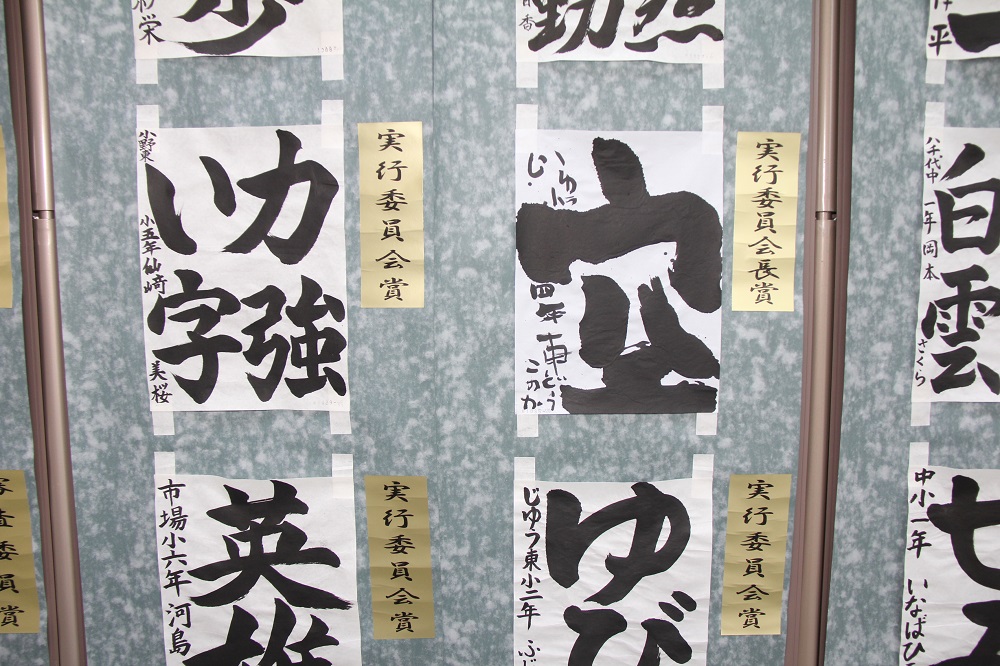 栄
香
平
小野東
小五年仙﨑
美桜
力強
い字
実行委員会賞
空
四年
このか
実行委員会長賞
八千代中
一年岡本
さくら
白雲
市場小六年河島
英雄
実行委員会賞
じゆう東小二年
ゆび
実行委員会賞
中小一年
いなばひ
査委員賞